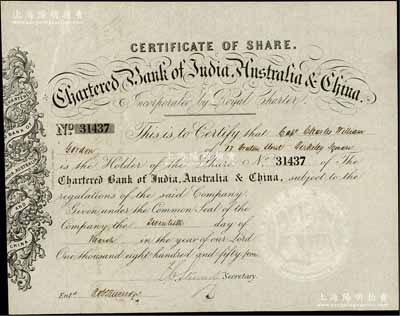 上海陽明拍賣
CERTIFICATE OF SHARE.
Chartered Bank of India, Australia & China.
Incorporated by Royal Charter.
No 31437 This is to Certify that Capt Charles William
Gordon of Berkeley Square
is the Holder of the Share No 31437 of The
Chartered Bank of India, Australia & China, subject to the
regulations of the said Company.
Given under the Common Seal of the
Company, the day of
March in the year of our Lord
One thousand eight hundred and fifty four
Secretary.
Entd